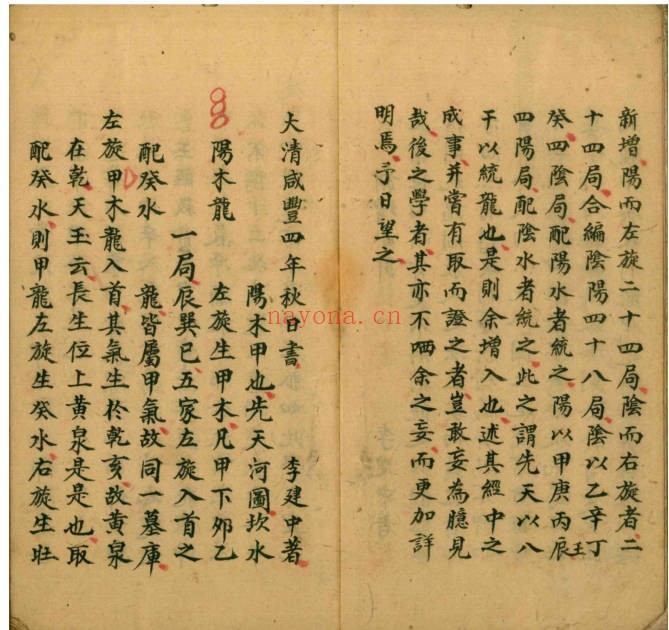 新增陽而左旋二十四局陰而右旋者二
十四局合編陰陽四十八局陰以乙辛丁
癸四陰局配陽水者統之陽以甲庚丙辰
壬
四陽局配陰水者統之此之謂先天以八
干以統龍也是則余增入也述其經中之
成事并嘗有取而證之者豈敢妄為臆見
哉後之學者其亦不哂余之妄而更加詳
明焉予日望之
大清咸豐四年秋日書 李建中著
陽木甲也先天河圖坎水
陽木龍 左旋生甲木凡甲下夘乙
一局辰巽巳五家左旋入首之
配癸水 龍皆屬甲氣故同一墓庫
左旋甲木龍入首其氣生於乾亥故黃泉
在乾天玉云長生位上黃泉是是也取
配癸水則甲龍左旋生癸水右旋生旺
nayona.cn